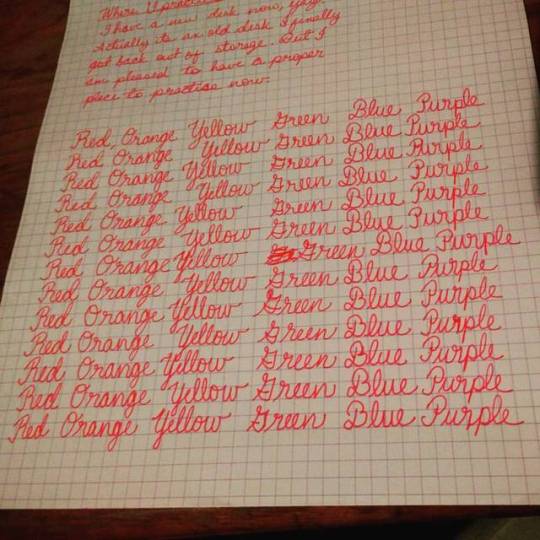 Where I
I have a new desk now, yay!
Actually its an old desk I finally
got back out of storage. But I
am pleased to have a proper
place to practise now.
Red Orange Yellow Green Blue Purple
Red Orange Yellow Green Blue Purple
Red Orange Yellow Green Blue Purple
Red Orange Yellow Green Blue Purple
Red Orange Yellow Green Blue Purple
Red Orange Yellow Green Blue Purple
Red Orange Yellow Green Blue Purple
Red Orange Yellow Green Blue Purple
Red Orange Yellow Green Blue Purple
Red Orange Yellow Green Blue Purple
Red Orange Yellow Green Blue Purple
Red Orange Yellow Green Blue Purple
Red Orange Yellow Green Blue Purple